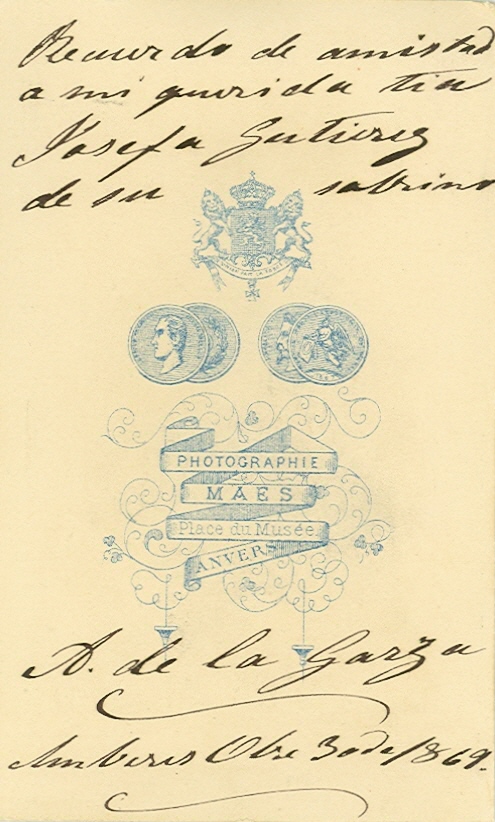 Recuerdo de amistad
a mi querida tia
Josefa Gutierez
de su sobrino
PHOTOGRAPHIE
MAES
Place du Musée
ANVERS
A. de la Garza
Amberes Obre 30 de 1869.